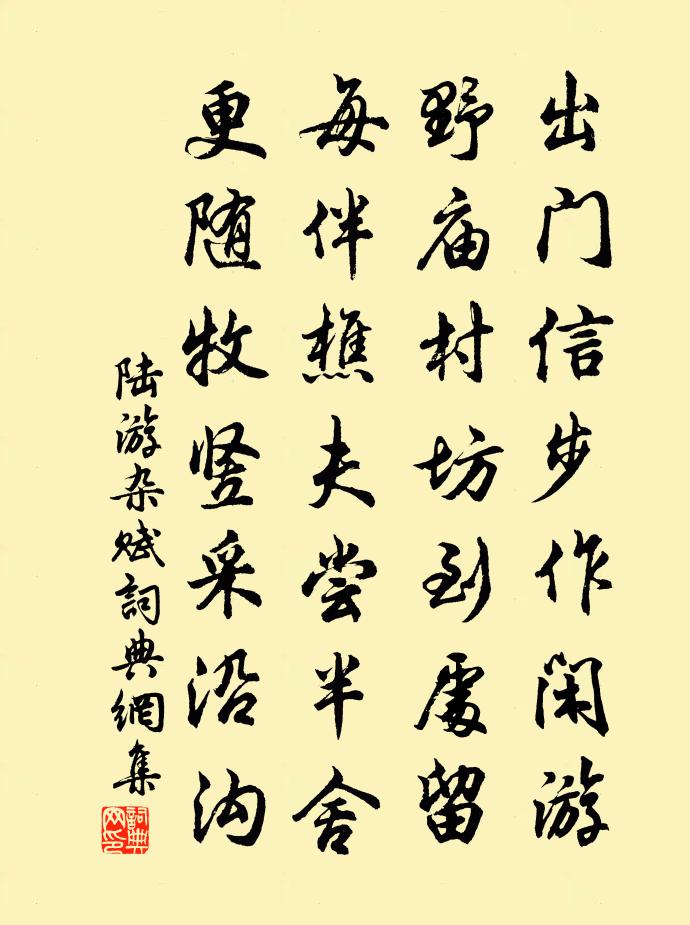 出门信步作闲游
野庙村坊到處留
每伴樵夫尝半舍
更随牧竖采沿沟
陆游杂赋詞典網集
詞典
网印